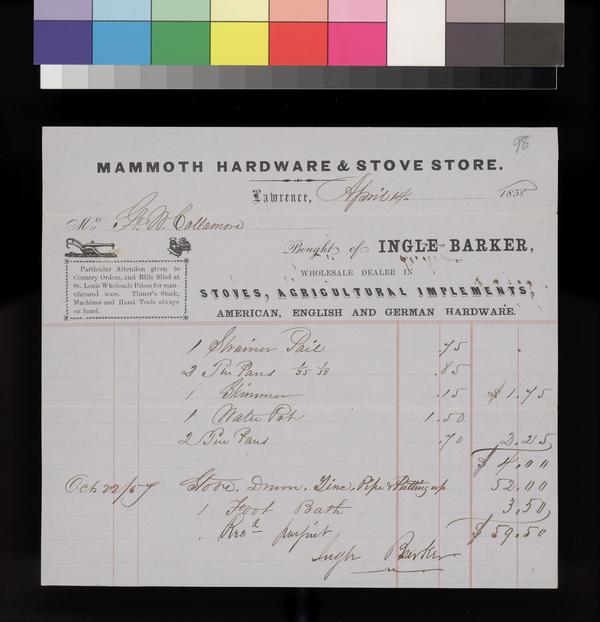 98
MAMMOTH HARDWARE & STOVE STORE.
Lawrence, April 14 1858
Mr. G. W. Collamore
Bought of INGLE BARKER,
WHOLESALE DEALER IN
STOVES, AGRICULTURAL IMPLEMENTS,
AMERICAN, ENGLISH AND GERMAN HARDWARE.
Particular Attention given to
Country Orders, and Bills filled at
St. Louis Wholesale Prices for man-
ufatured ware. Tinner's Stock,
Machines and Hand Tools always
on hand.
1 Strainer Pail .75
2 Tin Pans .85
1 Skimmer .15 $1.75
1 Water Pot 1.50
2 Tin Pans .70 2.25
$4.00
Oct 22/57 Stove. Drum. Zinc. Pipe & Putting up 52.00
1 Foot Bath 3.50
Recd payment $59.50
Ingle Barker